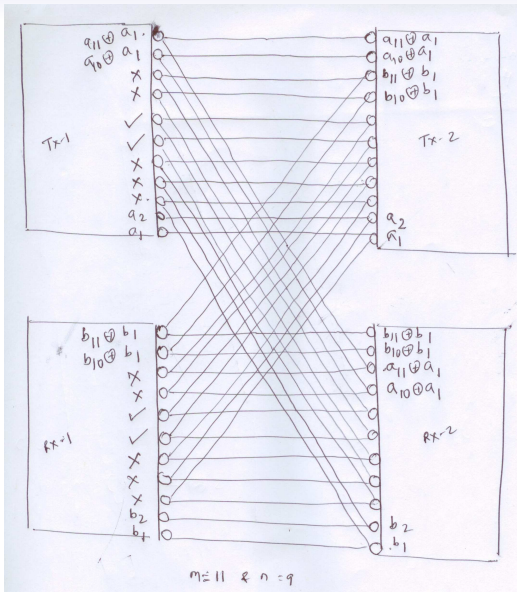 a11⊕a1.
a10⊕a1
x
x
✓
Tx-1
✓
x
x
x.
a2
a1
a11⊕a1
a10⊕a1
b11⊕b1
b10⊕b1
Tx-2
a2
a1
b11⊕b1
b10⊕b1
x
x
✓
Rx-1
✓
x
x
x
b2
b1
b11⊕b1
b10⊕b1
a11⊕a1
a10⊕a1
Rx-2
b2
b1
m=11 & n=9